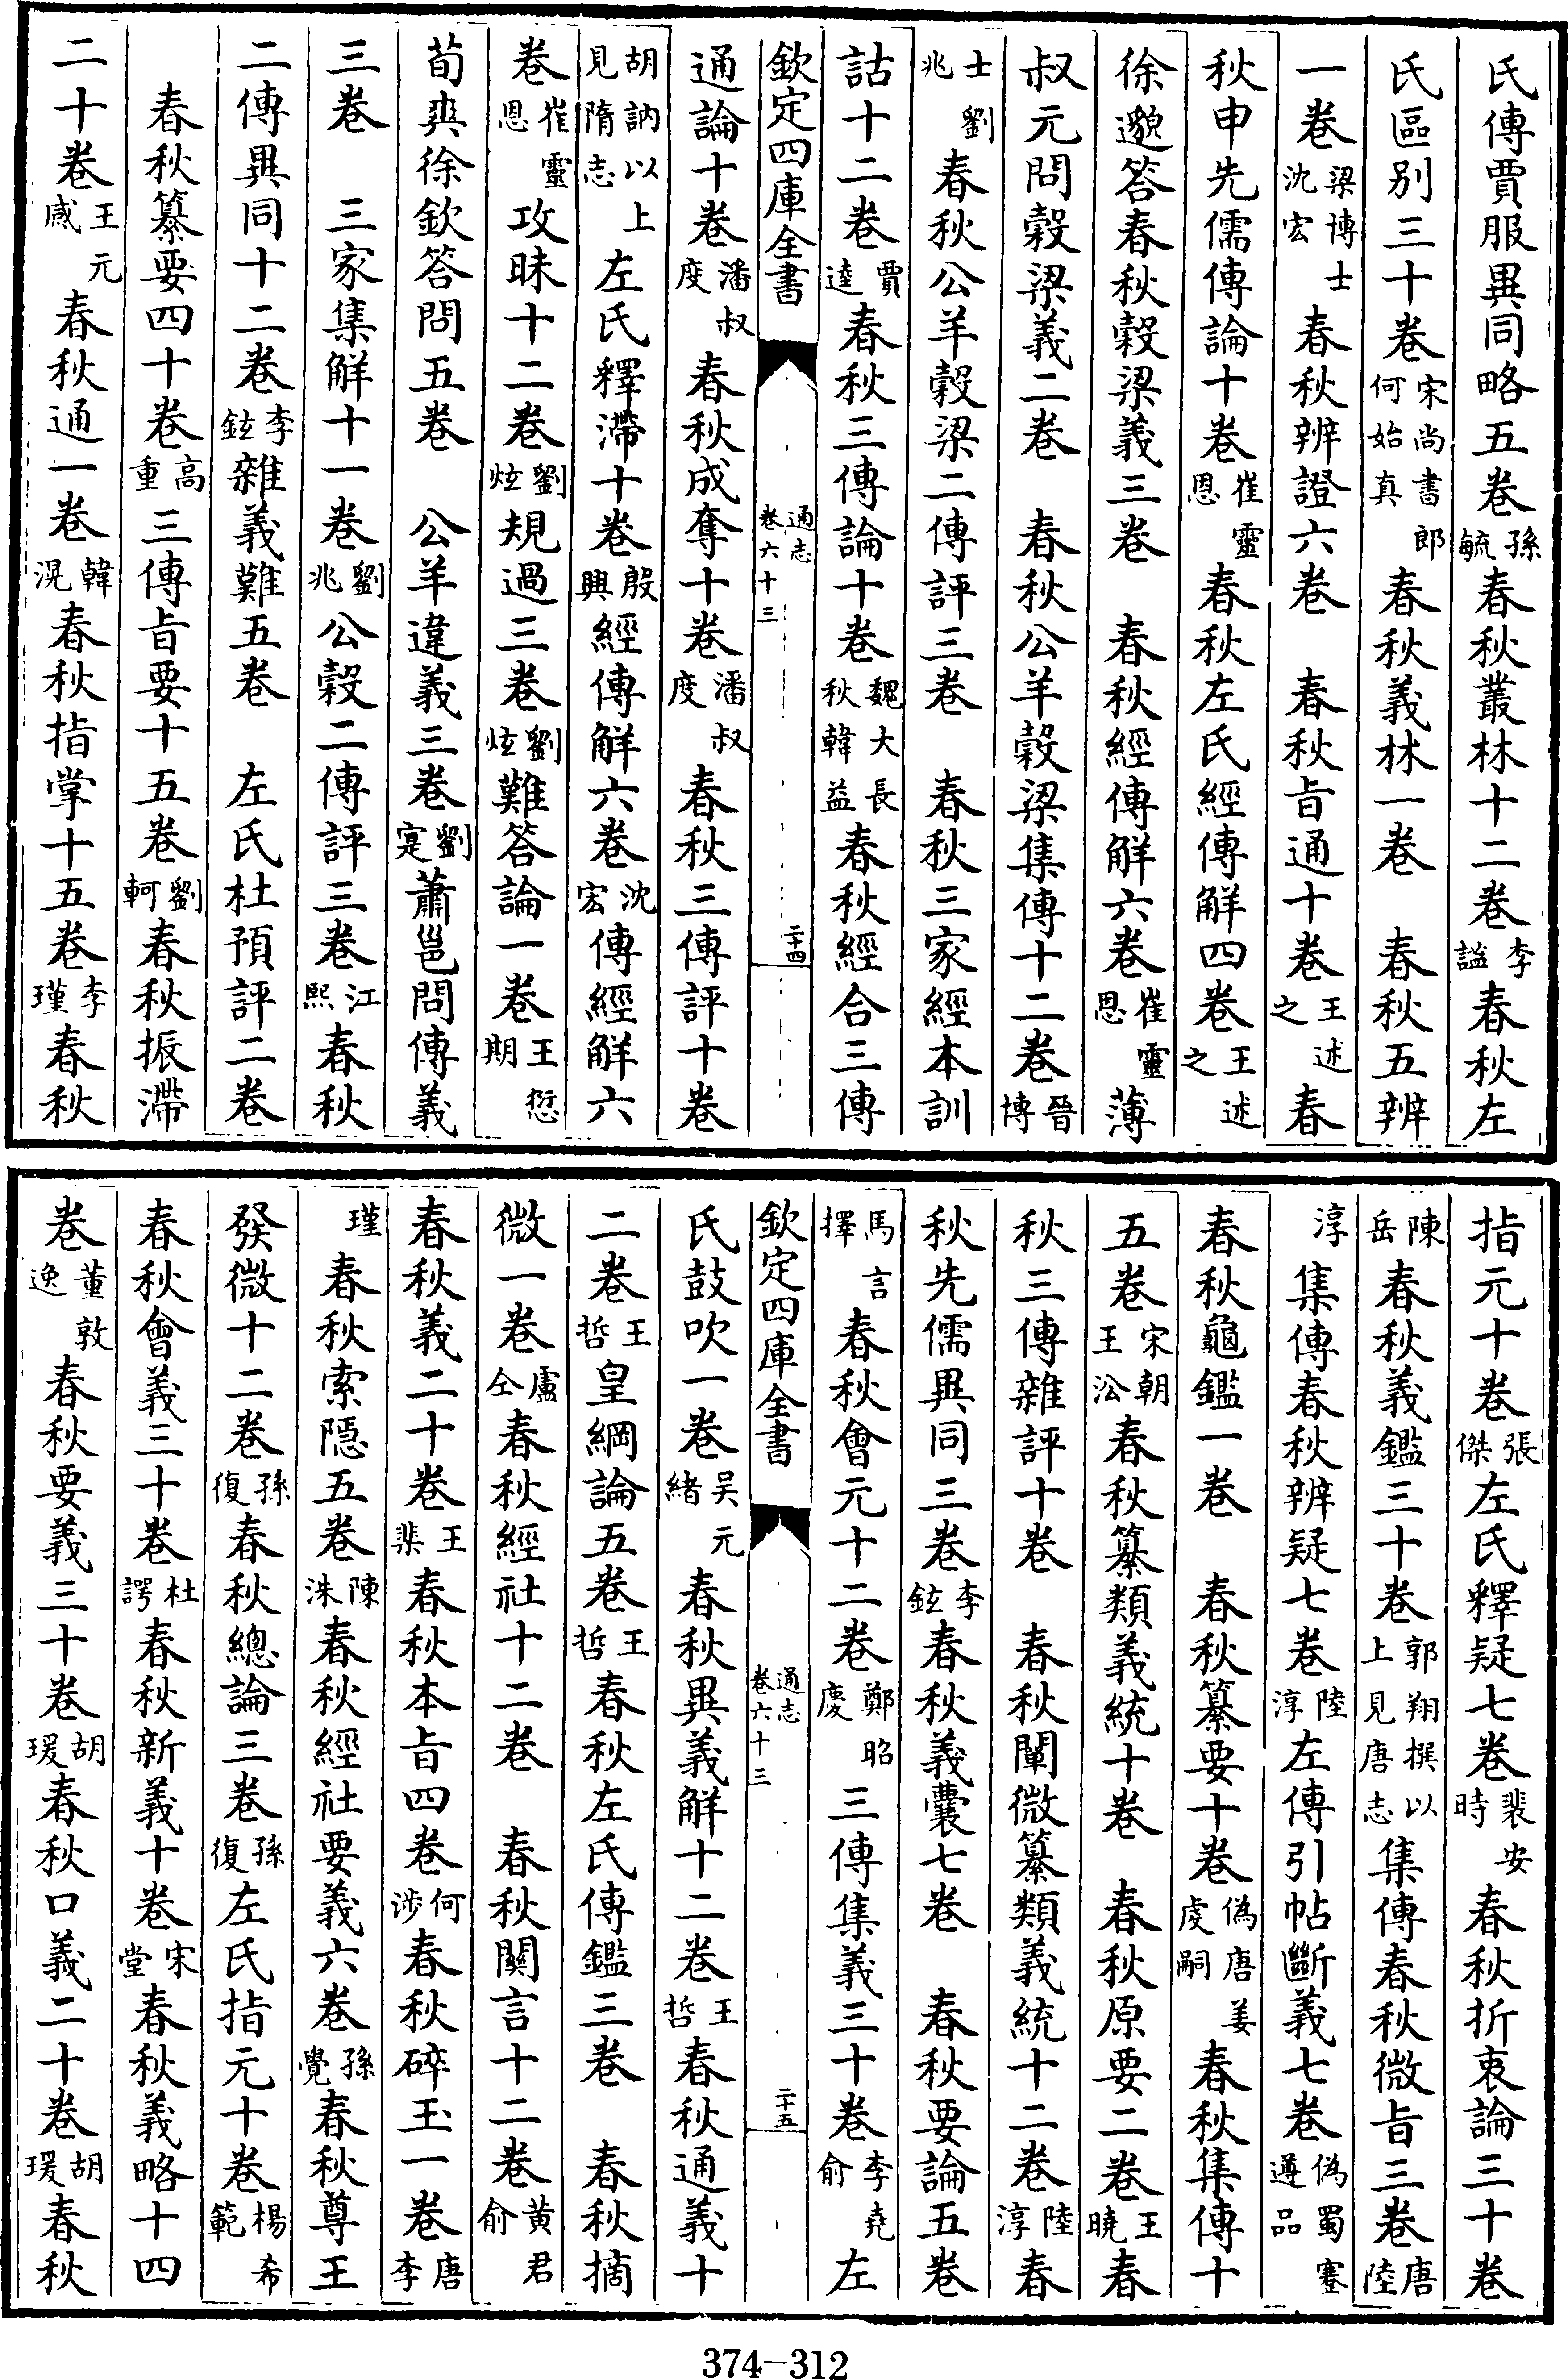 氏傳賈服異同略五卷孫毓春秋叢林十二卷李謐春秋左
氏區別三十卷宋尚書郎何始真春秋義林一卷　春秋五辨
一卷梁博士沈宏春秋辨證六卷　春秋旨通十卷王述之春
秋申先儒傳論十卷崔靈恩春秋左氏經傳解四卷王述之
徐邈答春秋穀梁義三卷　春秋經傳解六卷崔靈恩薄
叔元問穀梁義二卷　春秋公羊穀梁集傳十二卷晉博
士劉兆春秋公羊穀梁二傳評三卷　春秋三家經本訓
詁十二卷賈逵春秋三傳論十卷魏大長秋韓益春秋經合三傳
欽定四庫全書　通志卷六十三　二十四
通論十卷潘叔度春秋成奪十卷潘叔度春秋三傳評十卷
胡訥以上見隋志左氏釋滯十卷殷興經傳解六卷沈宏傳經解六
卷崔靈恩攻昧十二卷劉炫規過三卷劉炫難答論一卷王愆期
荀爽徐欽答問五卷　公羊違義三卷劉寔蕭邕問傳義
三卷　三家集解十一卷劉兆公穀二傳評三卷江熙春秋
二傳異同十二卷李鉉雜義難五卷　左氏杜預評二卷
春秋纂要四十卷高重三傳旨要十五卷劉軻春秋振滯
二十卷王元感春秋通一卷韓滉春秋指掌十五卷李瑾春秋
指元十卷張傑左氏釋疑七卷裴安時春秋折衷論三十卷
陳岳春秋義鑑三十卷郭翔撰以上見唐志集傳春秋微旨三卷唐陸
淳集傳春秋辨疑七卷陸淳左傳引帖斷義七卷偽蜀蹇遵品
春秋龜鑑一卷　春秋纂要十卷偽唐姜虔嗣春秋集傳十
五卷宋朝王沿春秋纂類義統十卷　春秋原要二卷王曉春
秋三傳雜評十卷　春秋闡微纂類義統十二卷陸淳春
秋先儒異同三卷李鉉春秋義囊七卷　春秋要論五卷
馬擇言春秋會元十二卷鄭昭慶三傳集義三十卷李堯俞左
欽定四庫全書　通志卷六十三　二十五
氏鼓吹一卷吴元緒春秋異義解十二卷王晢春秋通義十
二卷王晢皇綱論五卷王晢春秋左氏傳鑑三卷　春秋摘
微一卷盧仝春秋經社十二卷　春秋關言十二卷黄君俞
春秋義二十卷王棐春秋本旨四卷何涉春秋碎玉一卷唐李
瑾春秋索隱五卷陳洙春秋經社要義六卷孫覺春秋尊王
發微十二卷孫復春秋總論三卷孫復左氏指元十卷楊希範
春秋會義三十卷杜諤春秋新義十卷宋堂春秋義略十四
卷董敦逸春秋要義三十卷胡瑗春秋口義二十卷胡瑗春秋
374-312